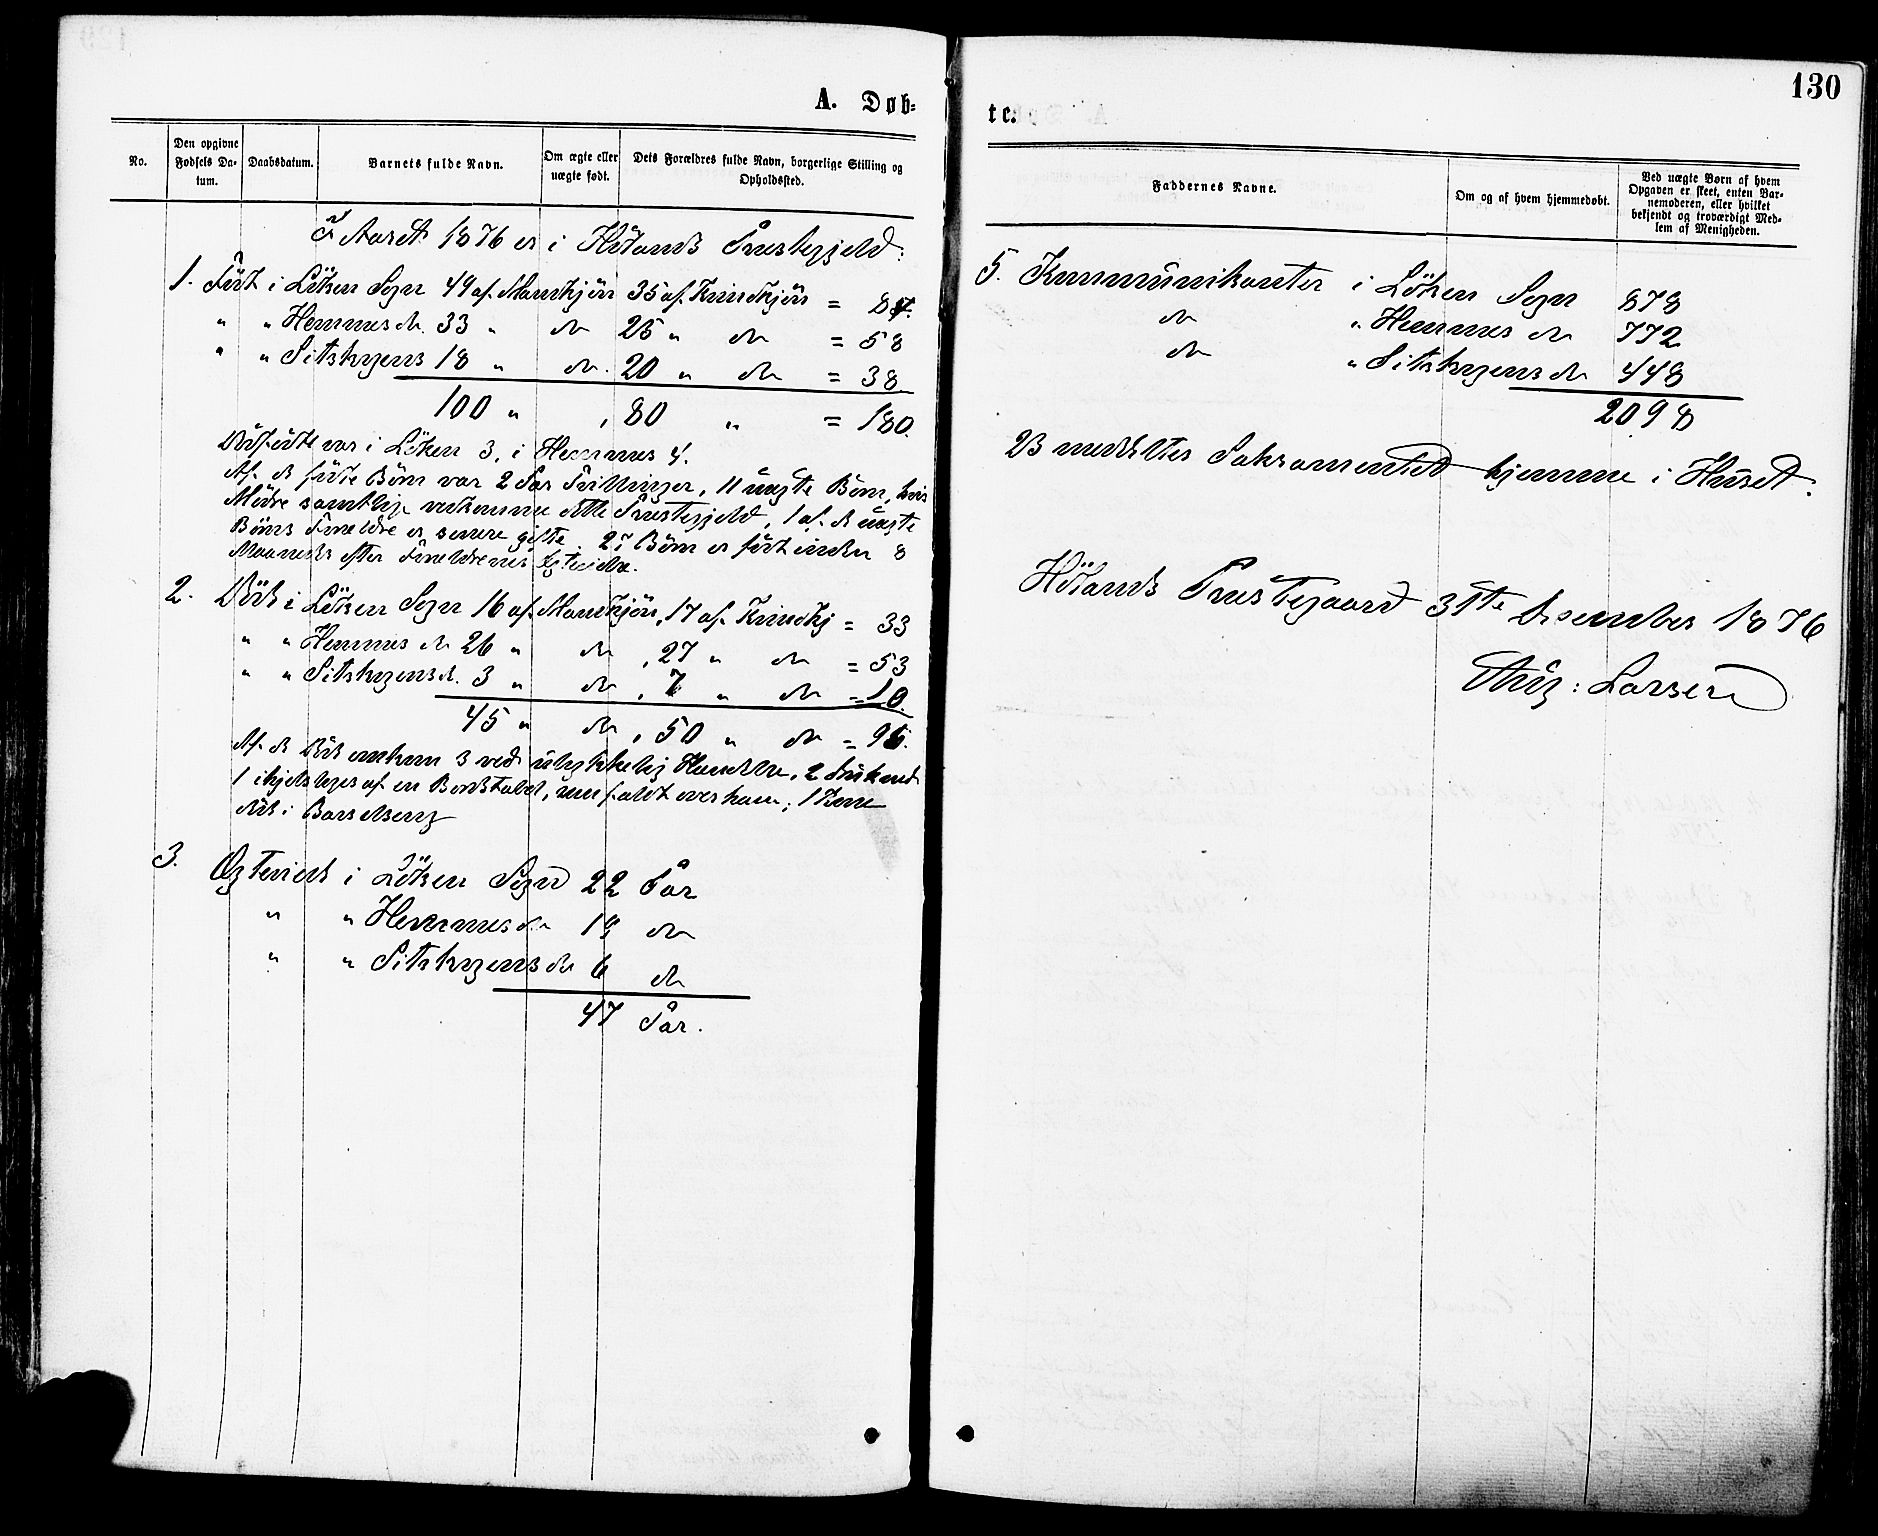 A. Døb=
No.
Den opgivne Fødsels Da-tum.
Daabsdatum.
Barnets fulde Navn.
Om ægte eller uægte født.
Dets Forældres fulde Navn, borgerlige Stilling og Opholdssted.
I Aaret 1876 er i Hölands Præstegjeld:
1. Födt i Löken Sogn 49 af Mandkjön 35 af Kvindkjön = 84.
" " Hemnes do. 33 " do 25 " do = 58
" " Sitskogens 18 " do. 20 " do = 38
100 " , 80 " = 180.
Dödfödte var i Löken 3, i Hemnes 4.
Af de födte Börn var 2 Par Tvillinger, 11 uægte Börn, hvis
Mödre samtlige vedkomme dette Præstegjeld, 1 af de uægte
Börns Forældre er senere gifte. 27 Börn er födt inden 8
Maaneder efter Forældrenes Egtevielse.
2. Döde i Löken Sogn 16 af Mandkjön, 17 af Kvindkj = 33
" " Hemnes do 26 " do , 27 " do = 53
" " Sitskogens do. 3 " do , 7 " do = 10.
45 " do , 50 " do = 96.
Af de Döde omkom 3 ved ulykkelig Hændelse, 2 druknede
1 ihjelsloges af en Bordstabel, som faldt over ham; 1 Kone
döde i Barselseng
3. Egteviede i Löken Sogn 22 Par
" " Hemnes do 19 do
" " Sitskogens do 6 do
47 Par.
130
te.
Faddernes Navne.
Om og af hvem hjemmedøbt.
Ved uægte Børn af hvem Opgaven er skeet, enten Bar-nemoderen, eller hvilket bekjendt og troværdigt Med-lem af Menigheden.
5. Kommunikanter i Löken Sogn 878
do " Hemnes do 772
do " Sitskogens do 448
2098
23 meddeltes Sakramentet hjemme i Huset.
Hölands Præstegaard 31te December 1876
Larsen